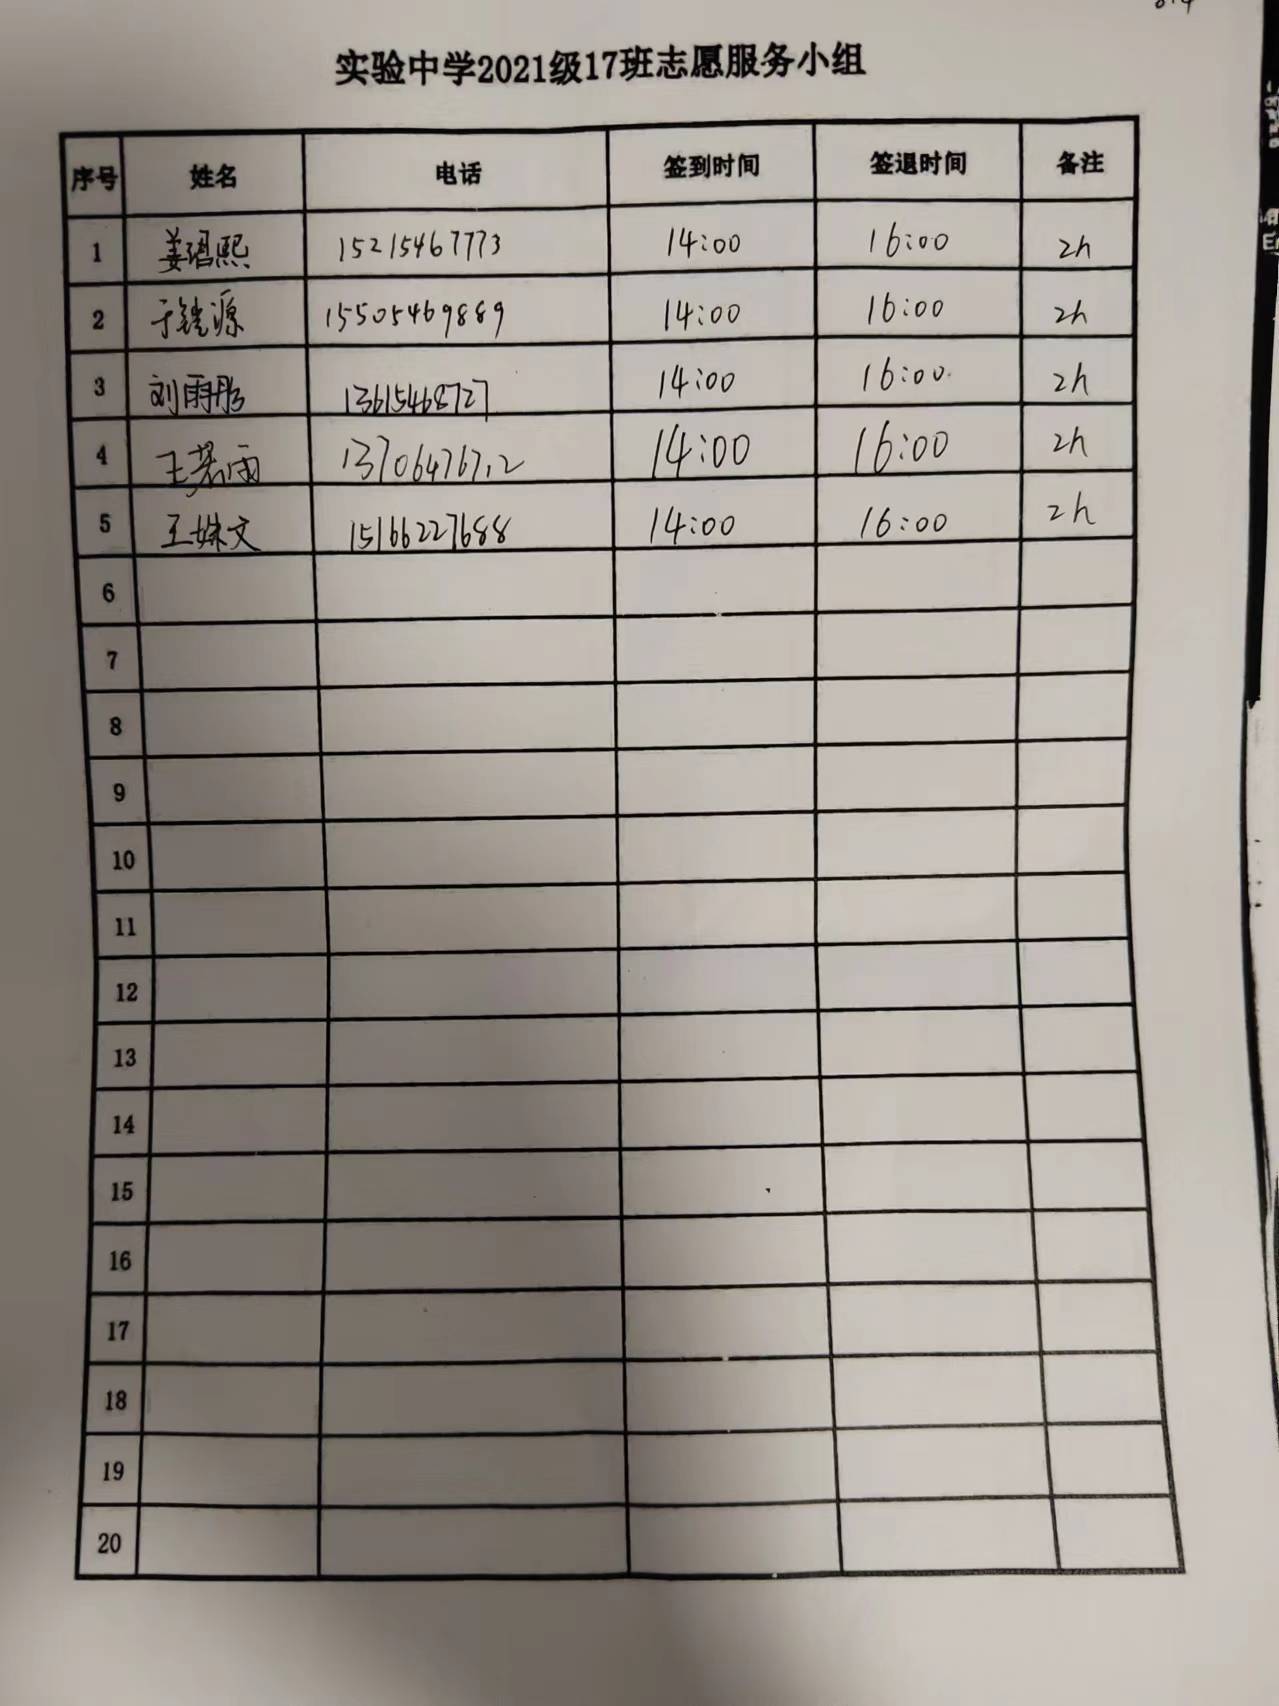 实验中学2021级17班志愿服务小组
序号 姓名 电话 签到时间 签退时间 备注
1 姜珺熙 15215467773 14:00 16:00 2h
2 于镱源 15505469889 14:00 16:00 2h
3 刘雨彤 13615468727 14:00 16:00 2h
4 王若雨 13706476712 14:00 16:00 2h
5 王姝文 15166227688 14:00 16:00 2h
6
7
8
9
10
11
12
13
14
15
16
17
18
19
20